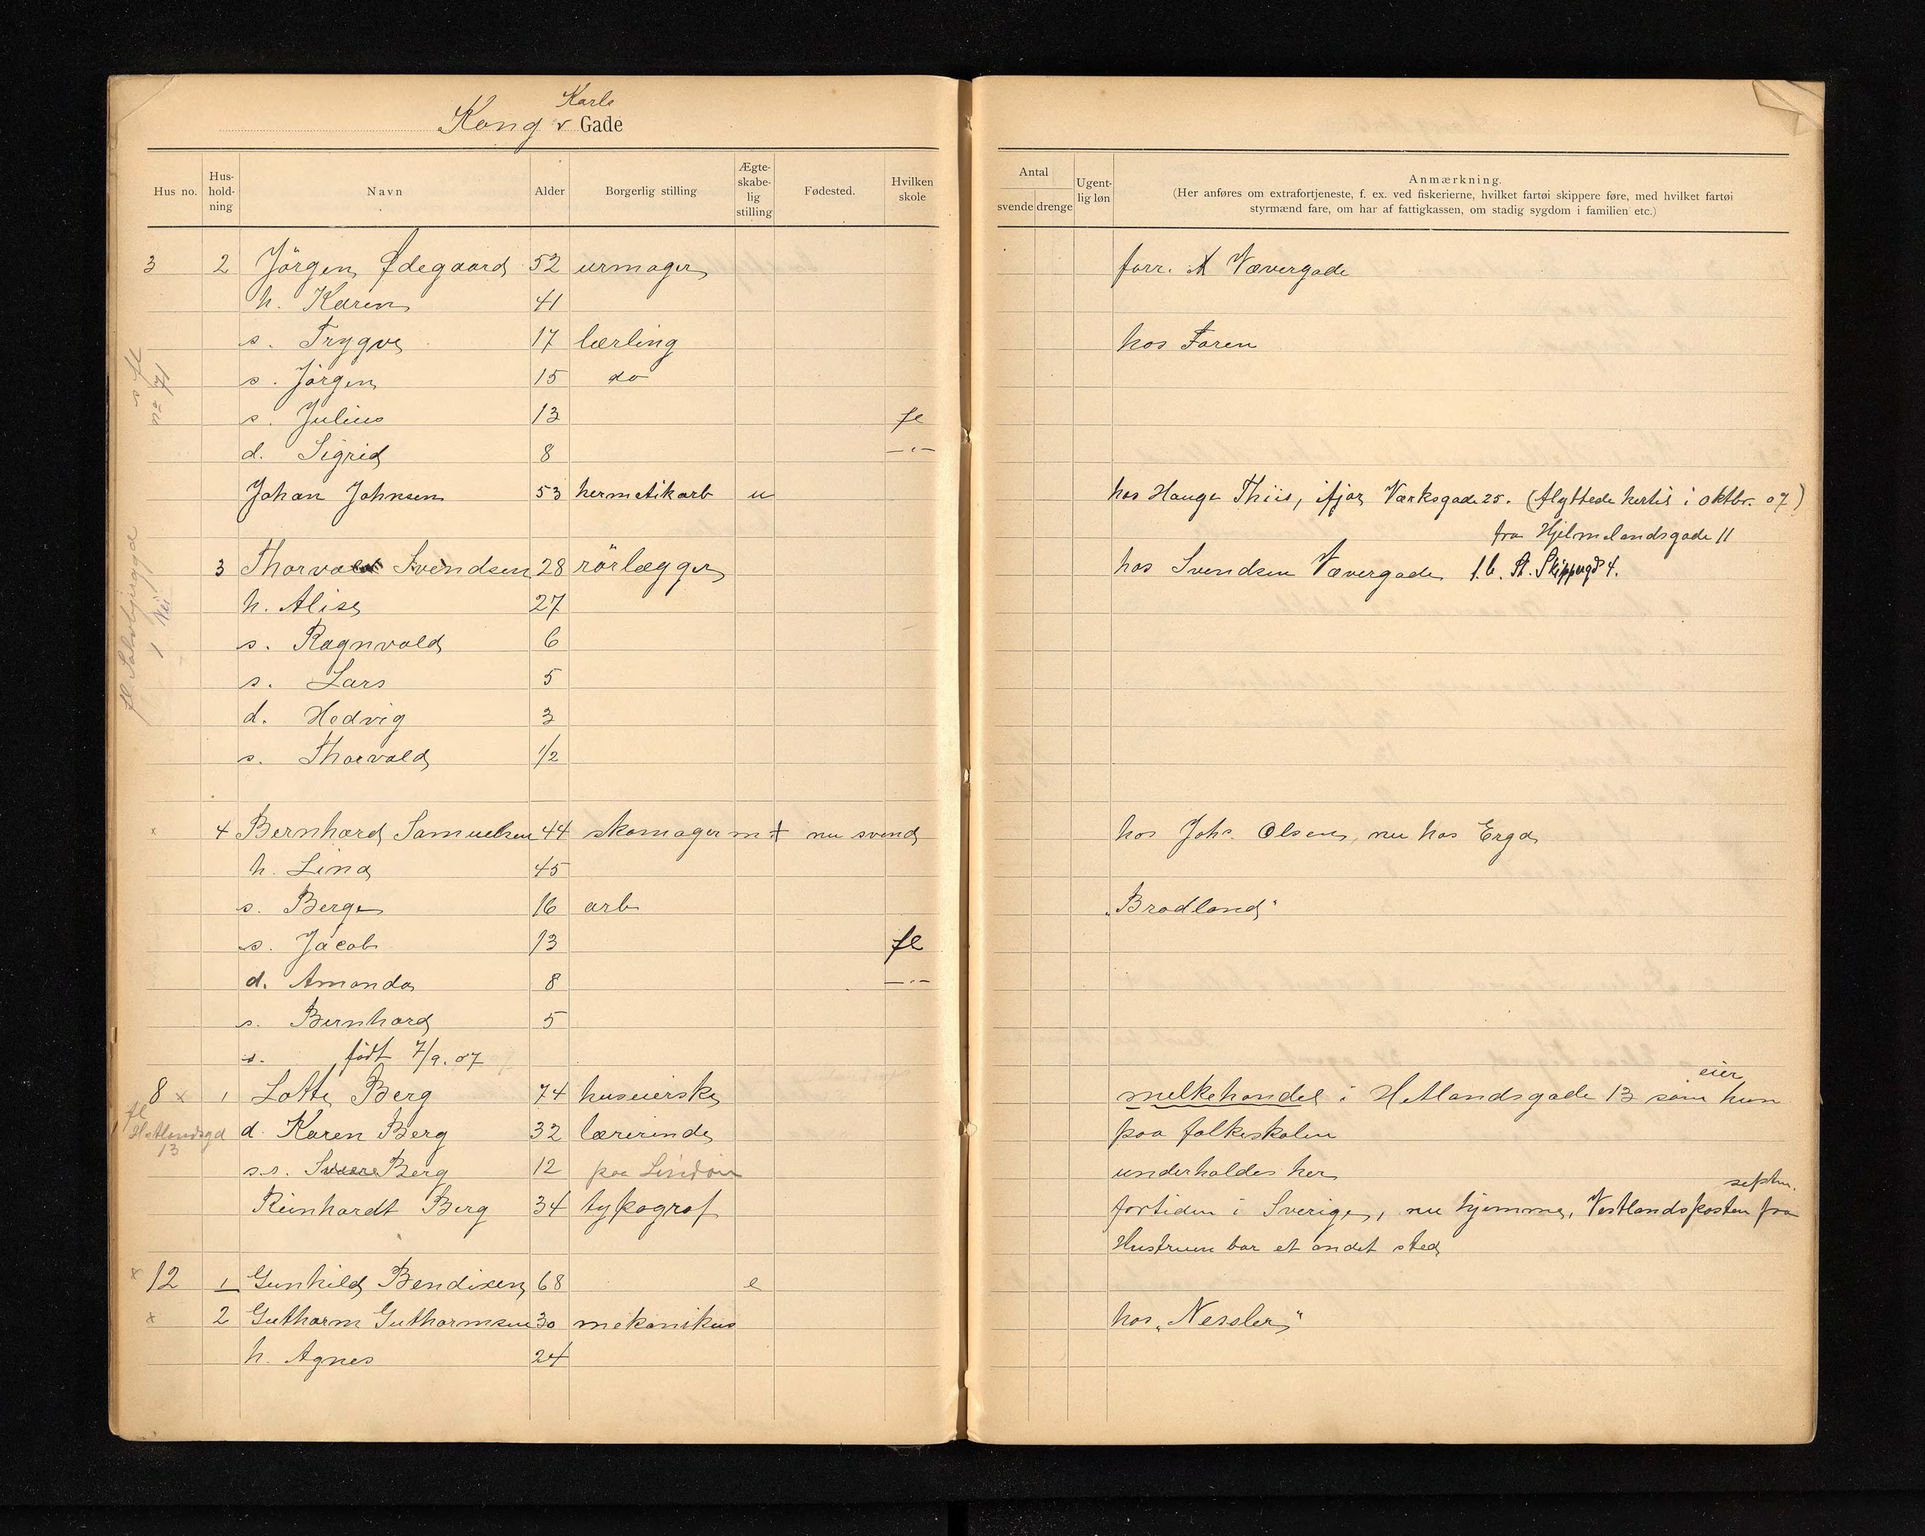 Karls
Kong v Gade
Hus no. Hus-hold-ning Navn Alder Borgerlig stilling Ægte-skabe-lig stilling Fødested. Hvilken skole
Antal svende drenge Ugent-lig løn Anmærkning.
(Her anføres om extrafortjeneste, f. ex. ved fiskerierne, hvilket fartøi skippere føre, med hvilket fartøi
styrmænd fare, om har af fattigkassen, om stadig sygdom i familien etc.)
3 2 Jörgen Ødegaard 52 urmager forr. A Vævergade
h. Karen 41
s. Trygve 17 lærling hos Faren
s. Jörgen 15 do
s. Julius 13 fl
d. Sigrid 8 —"—
Johan Johnsen 53 hermetikarb u hos Hauge Thiis, ifjor Værksgade 25. (flyttede hertil i oktbr. 07)
fra Hjelmelandsgade 11
3 Thorvald Svendsen 28 rörlægger hos Svendsen Vævergade f.b. St. Skippergd 4.
h. Alise 27
s. Ragnvald 6
s. Lars 5
d. Hedvig 3
s. Thorvald 1/2
x 4 Bernhard Samuelsen 44 skomager m + nu svend hos Johs. Olsen, nu hos Ergd
h. Lina 45
s. Berge 16 arb "Bradland"
s. Jacob 13 fl
d. Amanda 8 —"—
s. Bernhard 5
s. født 7/9.07
eier
8 x 1 Lotte Berg 74 huseierske melkehandel i Hetlandsgade 13 som hun
fl Hetlandsgd 13 d. Karen Berg 32 lærerinde paa folkeskolen
s.s. Sverre Berg 12 paa Lindøen underholdes her
septbr.
Reinhardt Berg 34 typograf fortiden i Sverige, nu hjemme, Vestlandsposten fra
Hustruen bor et andet sted
x 12 1 Gunhild Bendixen 68 e
x 2 Guthorm Guthormsen 30 mekanikus hos "Nessler"
h. Agnes 24